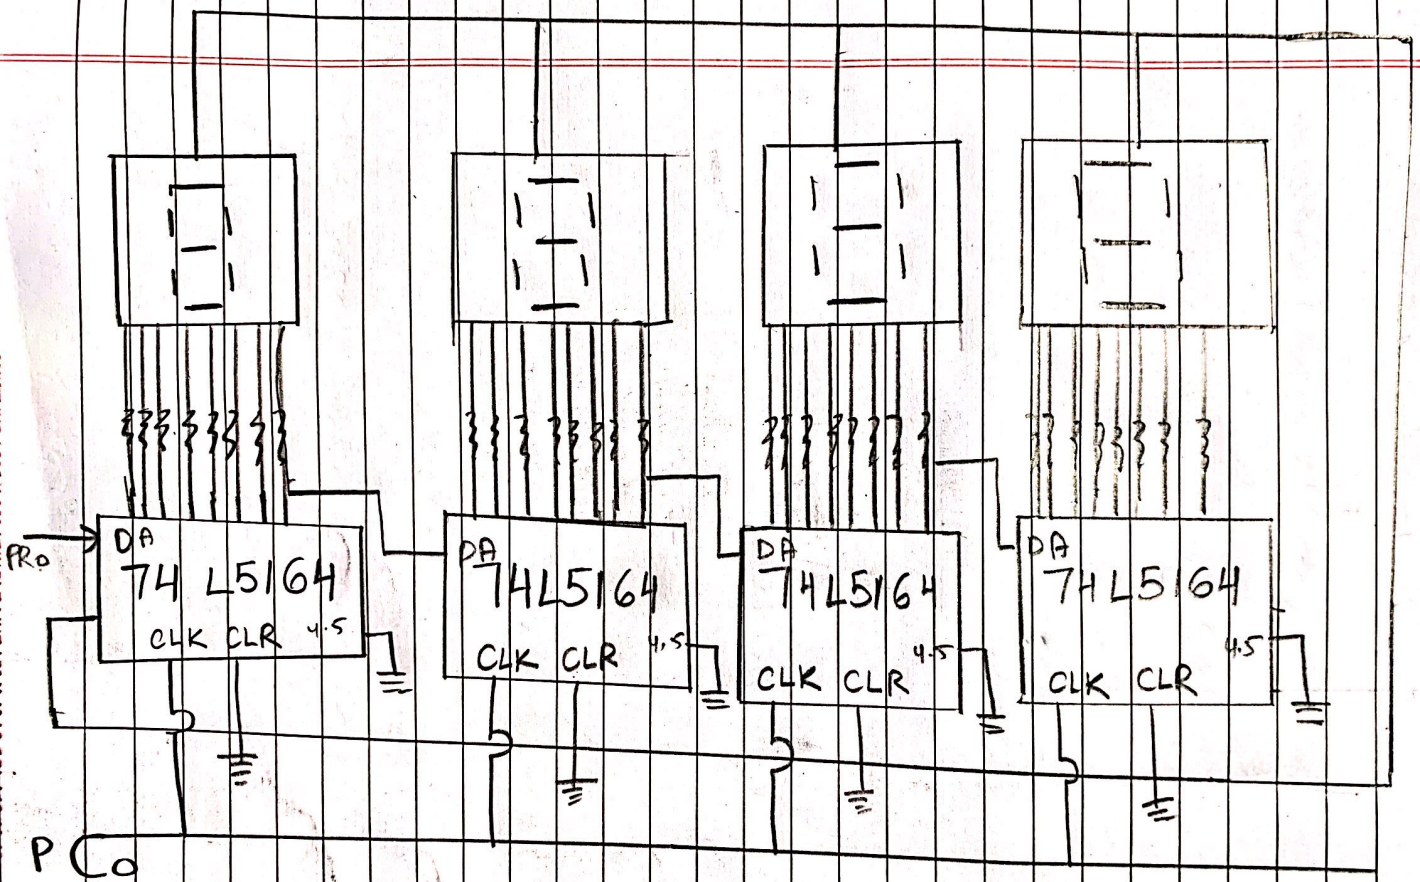 PRo
DA
74 L5164
CLK CLR 4.5
DA
74L5164
CLK CLR 4.5
DA
74L5164
CLK CLR 4.5
DA
74L5164
CLK CLR 4.5
PCo